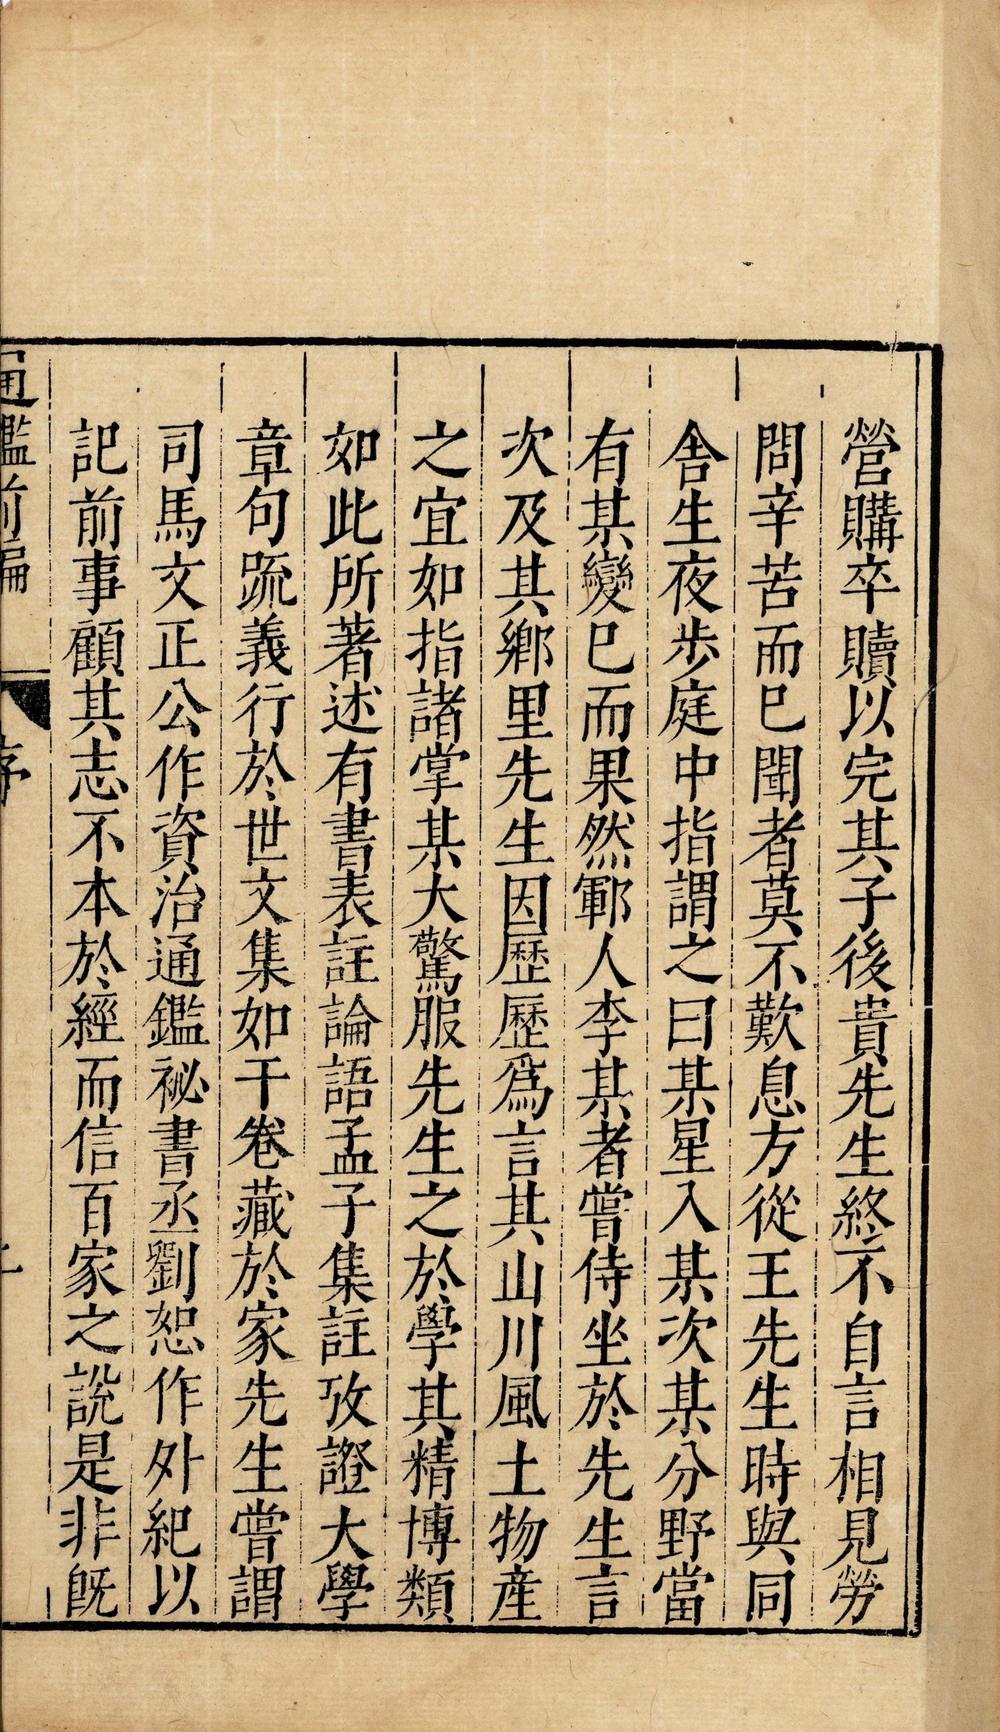 營購卒贖以完其子後貴先生終不自言相見勞
問辛苦而已聞者莫不歎息方從王先生時與同
舎生夜步庭中指謂之曰某星入某次某分野當
有某變已而果然鄆人李某者嘗侍坐於先生言
次及其鄕里先生因歷歷爲言其山川風土物産
之宜如指諸掌某大驚服先生之於學其精博類
如此所著述有書表註論語孟子集註攷證大學
章句䟽義行於世文集如干卷藏於家先生嘗謂
司馬文正公作資治通鑑祕書丞劉恕作外紀以
記前事顧其志不本於經而信百家之說是非旣
通鑑前編 序